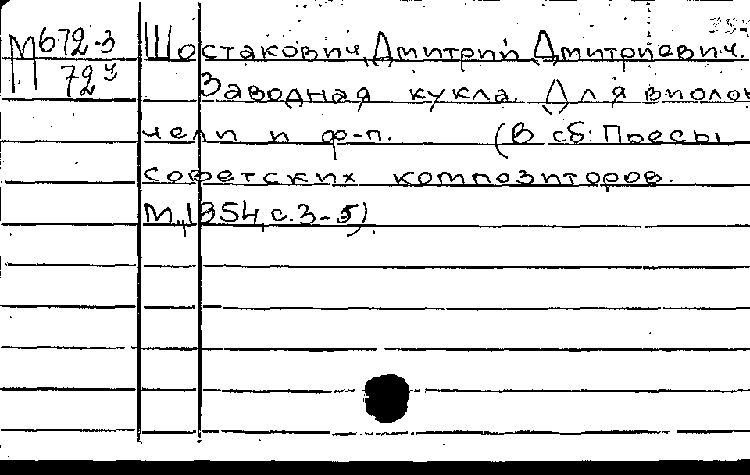 М672-3 Шостакович, Дмитрий Дмитриевич.
П 729 Заводная кукла. Для виолон
чели и ф-п. (В сб: Пьесы
советских композиторов.
М., 1954, с. 3-5).